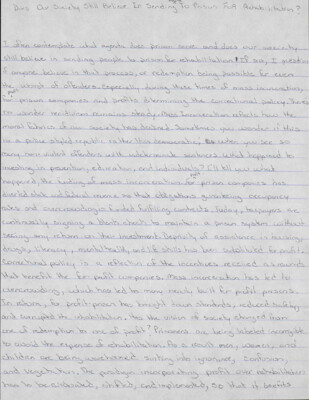 Does Our Society Still Believe In Sending To Prison For Rehabilitation?
I often contemplate what aspects does prison serve and does our society
still believe in sending people to prison for rehabilitation? If so, I question
if anyone believe in that process, or redemption being possible for even
the worst of offenders. Especially, during these times of mass incarceration,
for-prison companies and profits determining the correctional policy. There's
no wonder recidivism remains steady. Mass incarceration reflects how the
moral fabrics of our society has declined. Sometimes you wonder if this
is a police styled republic rather than democratic, when you see so
many non-violent offenders with sentences. What happened to
investing in prevention, education, and individuals? I'll tell you what
happened, the ending of mass incarceration for prison companies has
that obligations guaranteeing occupancy
rates and overcrowding contracts. Today, taxpayers are
continually signing a blank check to maintain a prison system without
seeing any return on their investment. Majority of assistance in housing,
drugs, literacy, mental health, and life skills has been substituted for profit.
Correctional policy is a reflection of the incentives received in amounts
that benefit the for-profit companies. Mass incarceration has led to
overcrowding, what has led to many newly built for profit prisons.
In return, for profit prison has brought fewer students, reduced safety,
and corrupted the rehabilitation. Has the vision of society changed from
one of redemption to one of profit? Prisoners are being labeled incorrigible
to avoid the expense of rehabilitation. As a result men, women, and
children are being warehoused sinking into ignorance, confusion,
and vegetation. The paradigm incorporating profit over rehabilitation
has to be evaluated, shifted, and implemented, so that it benefits